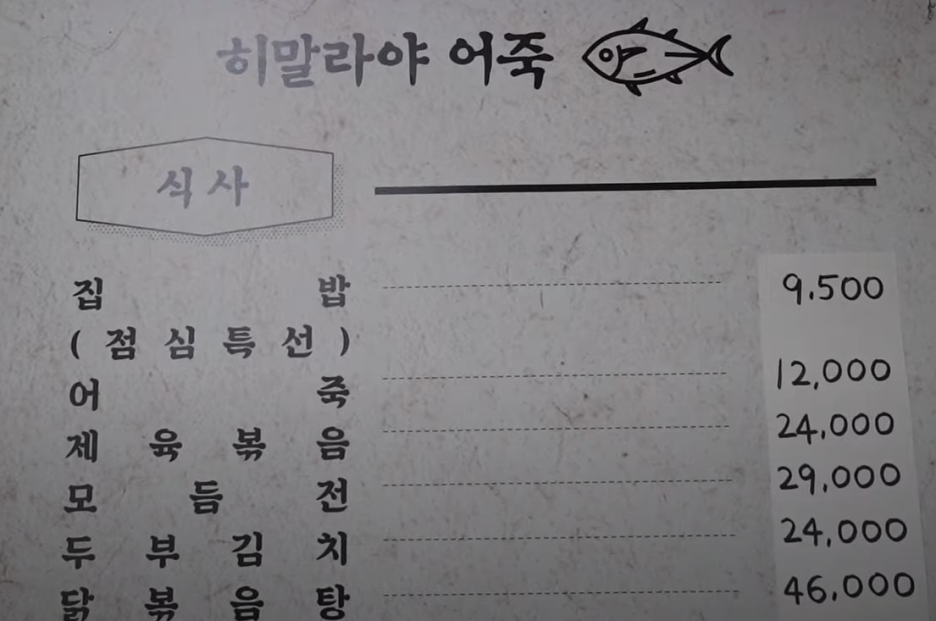 히말라야 어죽
식사
집밥 9.500
(점심특선)
어죽 12,000
제육볶음 24,000
모듬전 29,000
두부김치 24,000
닭볶음탕 46,000